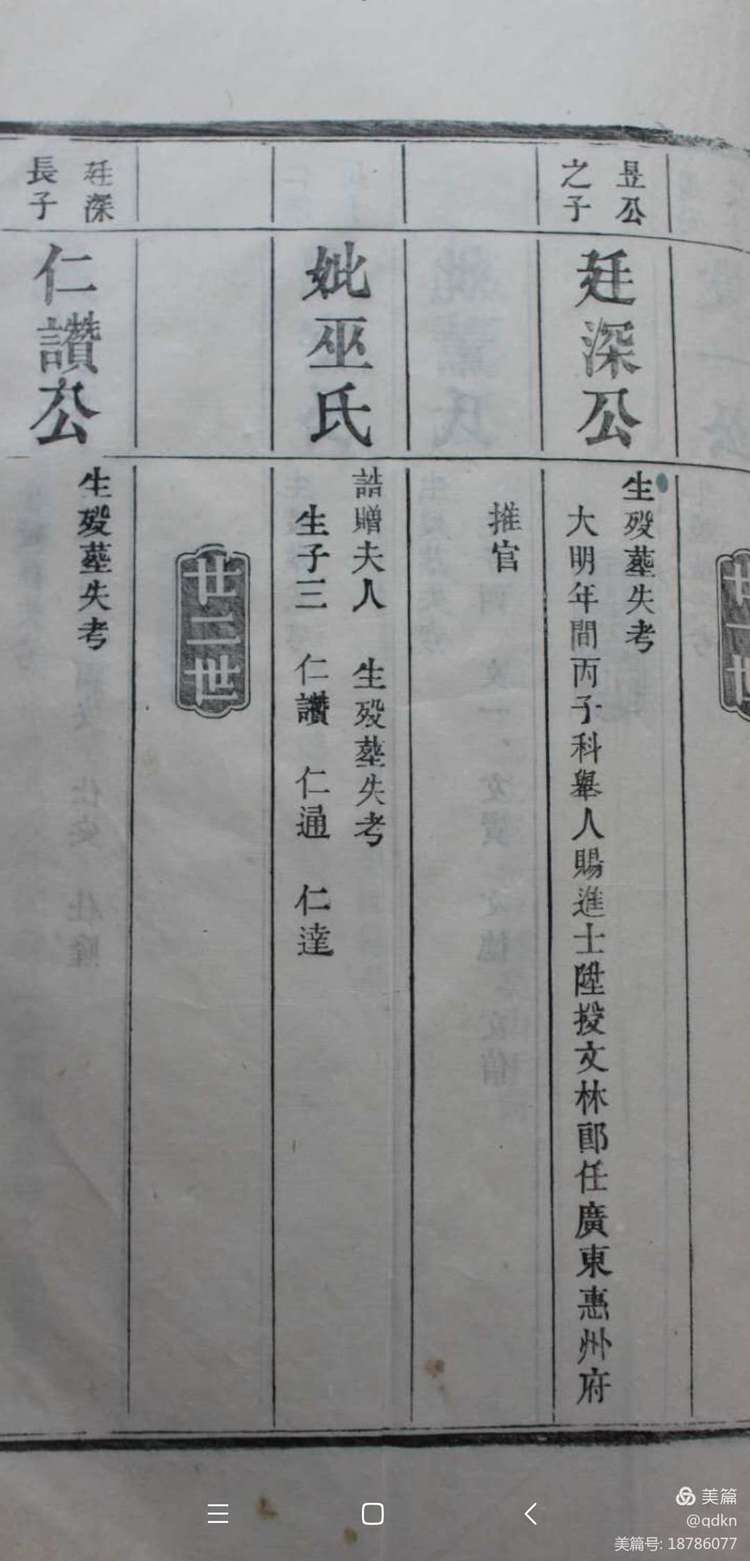 廿一世
昱公
之子
廷深公
生歿塟失考
大明年間丙子科舉人賜進士陞授文林郎任廣東惠州府
推官
妣巫氏
誥贈夫人 生歿塟失考
生子三 仁讚 仁通 仁達
廿二世
廷深
長子
仁讚公
生歿塟失考
美篇
@qdkn
美篇号: 18786077